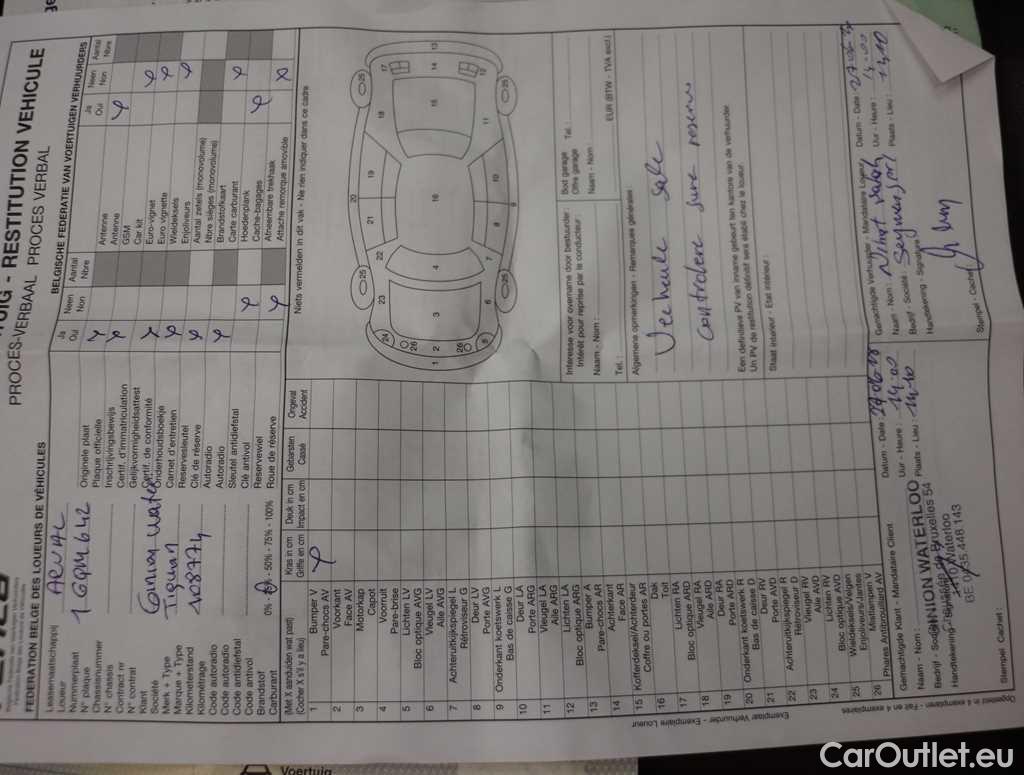 TUIG - RESTITUTION VEHICULE
PROCES-VERBAAL PROCES VERBAL
FEDERATION BELGE DES LOUEURS DE VÉHICULES
BELGISCHE FEDERATIE VAN VOERTUIGEN VERHUURDERS
Leasemaatschappij
Loueur
Nummerplaat
N° plaque
1 GQM 642
Chassisnummer
N° chassis
Contract nr
N° contrat
Klant
Société
Merk + Type
Marque + Type
Tiguan
Kilometerstand
Kilométrage
108774
Code autoradio
Code autoradio
Code antidiefstal
Code antivol
Brandstof
Carburant
0% - 50% - 75% - 100%
Ja
Oui
Neen
Non
Aantal
Nbre
Originele plaat
Plaque officielle
Inschrijvingsbewijs
Certif. d'immatriculation
Gelijkvormigheidsattest
Certif. de conformité
Onderhoudsboekje
Carnet d'entretien
Reservesleutel
Clé de réserve
Autoradio
Autoradio
Sleutel antidiefstal
Clé antivol
Reservewiel
Roue de réserve
Ja
Oui
Neen
Non
Aantal
Nbre
Antenne
Antenne
GSM
Car kit
Euro-vignet
Euro vignette
Wieldeksels
Enjoliveurs
Aantal zetels (monovolume)
Nbre sièges (monovolume)
Brandstofkaart
Carte carburant
Hoedenplank
Cache-bagages
Afneembare trekhaak
Attache remorque amovible
(Met X aanduiden wat past)
(Cocher X s'il y a lieu)
Kras in cm
Griffe en cm
Deuk in cm
Impact en cm
Gebarsten
Cassé
Ongeval
Accident
1 Bumper V
Pare-chocs AV
2 Voorkant
Face AV
3 Motorkap
Capot
4 Voorruit
Pare-brise
5 Lichten LV
Bloc optique AVG
6 Vleugel LV
Aile AVG
7 Achteruitkijkspiegel L
Rétroviseur G
8 Deur LV
Porte AVG
9 Onderkant koetswerk L
Bas de caisse G
10 Deur LA
Porte ARG
11 Vleugel LA
Aile ARG
12 Lichten LA
Bloc optique ARG
13 Bumper A
Pare-chocs AR
14 Achterkant
Face AR
15 Kofferdeksel/Achterdeur
Coffre ou portes AR
16 Dak
Toit
17 Lichten RA
Bloc optique ARD
18 Vleugel RA
Aile ARD
19 Deur RA
Porte ARD
20 Onderkant koetswerk R
Bas de caisse D
21 Deur RV
Porte AVD
22 Achteruitkijkspiegel R
Rétroviseur D
23 Vleugel RV
Aile AVD
24 Lichten RV
Bloc optique AVD
25 Wieldeksels/Velgen
Enjoliveurs/Jantes
26 Mistlampen V
Phares Antibrouillard AV
Niets vermelden in dit vak - Ne rien indiquer dans ce cadre
1 2 3 4 5 6 7 8 9 10 11 12 13 14 15 16 17 18 19 20 21 22 23 24 25 25 25 25 26 26
Interesse voor overname door bestuurder:
Intérêt pour reprise par le conducteur :
Naam - Nom :
Tel. :
Bod garage
Offre garage
Tel. :
Naam - Nom :
EUR (BTW - TVA excl.)
Algemene opmerkingen - Remarques générales :
Vecheule sale
controlere sure reserve
Een definitieve PV van inname gebeurt ten kantore van de verhuurder.
Un PV de restitution définitif sera établi chez le loueur.
Staat interieur - Etat intérieur :
Gemachtigde Klant - Mandataire Client
Naam - Nom :
Datum - Date : 27.06.18
Uur - Heure : 14:00
Plaats - Lieu : 14.10
UNION WATERLOO
de Bruxelles 54
Waterloo
BE 0435 448 143
Stempel - Cachet :
Gemachtigde Verhuurder - Mandataire Loueur
Naam - Nom :
Bedrijf - Société :
Handtekening - Signature :
Datum - Date : 27.06.18
Uur - Heure : 14:00
Plaats - Lieu : 14.10
Stempel - Cachet :
Opgemaakt in 4 exemplaren - Fait en 4 exemplaires
Exemplaar Verhuurder - Exemplaire Loueur
Voertuig
CarOutlet.eu